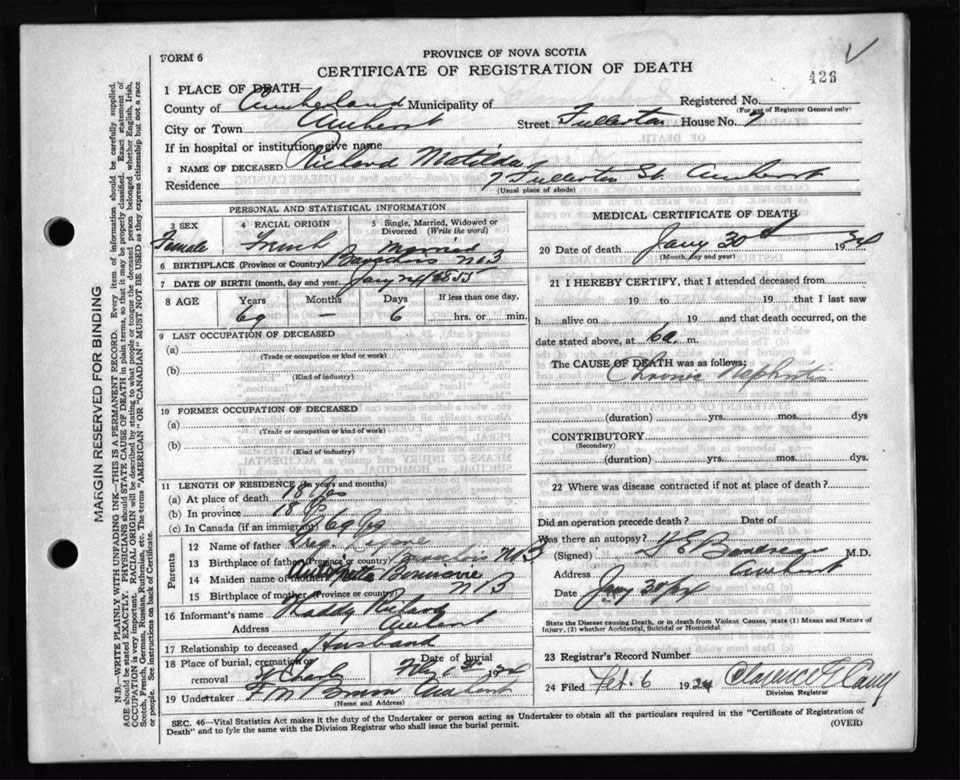 FORM 6
PROVINCE OF NOVA SCOTIA
CERTIFICATE OF REGISTRATION OF DEATH
426
1 PLACE OF DEATH—
County of Cumberland Municipality of Registered No.
(For use of Registrar General only)
City or Town Amherst Street Fullerton House No. 7
If in hospital or institution give name
2 NAME OF DECEASED Richard Matilda
Residence 7 Fullerton St. Amherst
(Usual place of abode)
PERSONAL AND STATISTICAL INFORMATION
3 SEX 4 RACIAL ORIGIN 5 Single, Married, Widowed or Divorced (Write the word)
Female French Married
6 BIRTHPLACE (Province or Country) N.B
7 DATE OF BIRTH (month, day and year) Jany 24
8 AGE Years Months Days If less than one day.
69 — 6 hrs. or min.
9 LAST OCCUPATION OF DECEASED
(a)
(Trade or occupation or kind or work)
(b)
(Kind of industry)
10 FORMER OCCUPATION OF DECEASED
(a)
(Trade or occupation or kind of work)
(b)
(Kind of industry)
11 LENGTH OF RESIDENCE (in years and months)
(a) At place of death 18 yrs
(b) In province 18
(c) In Canada (if an immigrant) 69 yrs
Parents
12 Name of father
13 Birthplace of father (Province or country) N.B
14 Maiden name of mother
15 Birthplace of mother (Province or country) N B
16 Informant's name
Address Amherst
17 Relationship to deceased Husband
18 Place of burial, cremation or removal St Charles Date of burial
19 Undertaker F M Brown Amherst
(Name and Address)
MEDICAL CERTIFICATE OF DEATH
20 Date of death Jany 30th 1924
(Month, day and year)
21 I HEREBY CERTIFY, that I attended deceased from
19 to 19 that I last saw
h alive on 19 and that death occurred, on
date stated above, at 6 a. m.
The CAUSE OF DEATH was as follows:
Chronic Nephritis
(duration) yrs. mos. dys
CONTRIBUTORY
(Secondary)
(duration) yrs. mos. dys
22 Where was disease contracted if not at place of death?
Did an operation precede death? Date of
Was there an autopsy?
(Signed) M.D.
Address Amherst
Date Jany 30/24
State the Disease causing Death, or in death from Violent Causes, state (1) Means and Nature of Injury, (2) whether Accidental, Suicidal or Homicidal.
23 Registrar's Record Number
24 Filed Feb. 6 1924
Division Registrar
SEC. 46—Vital Statistics Act makes it the duty of the Undertaker or person acting as Undertaker to obtain all the particulars required in the "Certificate of Registration of
Death" and to fyle the same with the Division Registrar who shall issue the burial permit. (OVER)
MARGIN RESERVED FOR BINDING
N.B.—WRITE PLAINLY WITH UNFADING INK—THIS IS A PERMANENT RECORD. Every item of information should be carefully supplied.
AGE should be stated EXACTLY. PHYSICIANS should STATE CAUSE OF DEATH in plain terms, so that it may be properly classified. Exact statement of
OCCUPATION is very important. RACIAL ORIGIN will be described by stating to what people or tongue the deceased person belonged whether English, Irish,
Scotch, French, German, Russian, Ruthenian, etc. The terms "AMERICAN" OR "CANADIAN" MUST NOT BE USED as they express citizenship but not a race
or people. See instructions on back of Certificate.